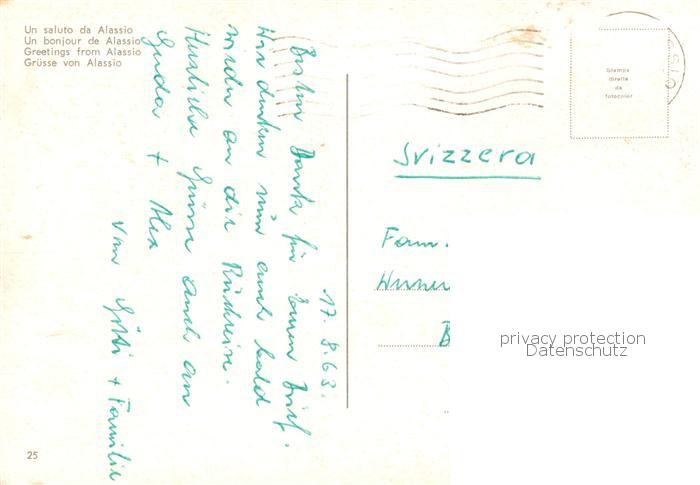 Un saluto da Alassio
Un bonjour de Alassio
Greetings from Alassio
Grüsse von Alassio
17. 8. 63.
Besten Dank für Euren Brief.
Wir denken nun auch bald
wieder an die Rückreise.
Herzliche Grüsse auch an
Gerda + Alex
von Gitti + Familie
Svizzera
Fam.
Stampa
diretta
da
fotocolor
privacy protection
Datenschutz
25